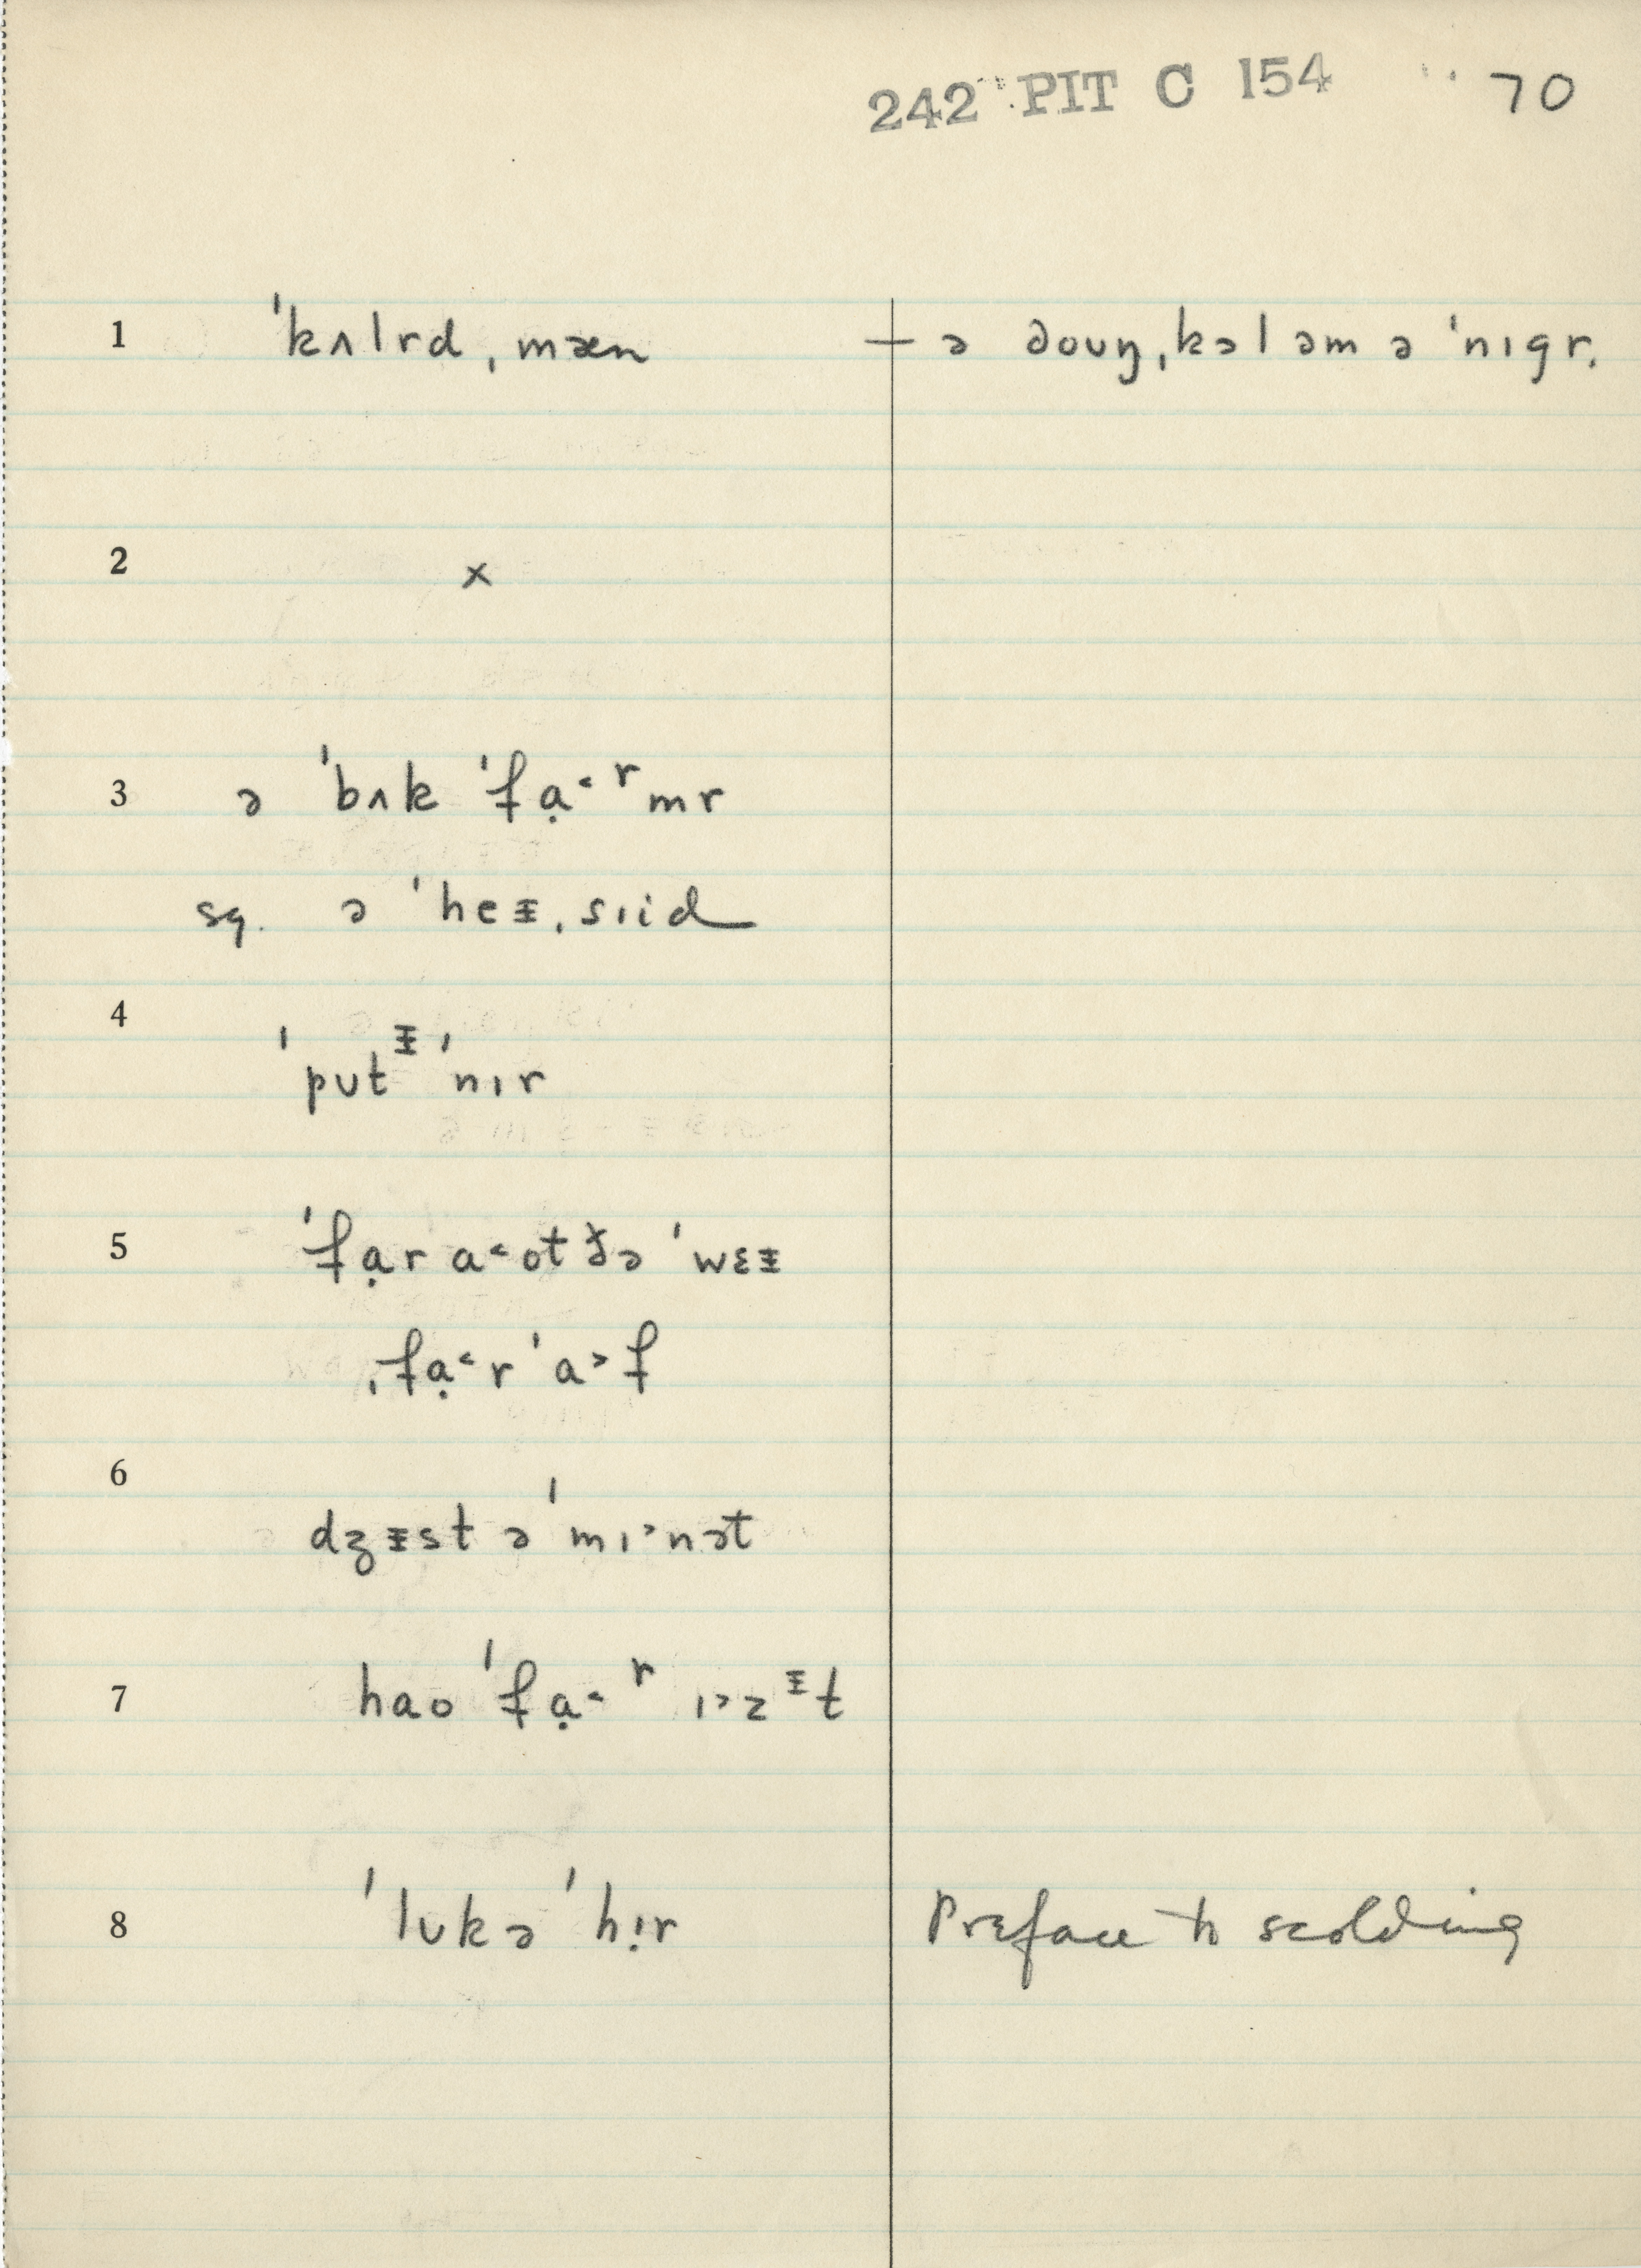 242 PIT C 154 70
1 ˈkʌlrd ˌmæn — ə doʊŋ ˌkɔl əm ə ˈnɪgr.
2 x
3 ə ˈbʌk ˈfɑ̣˂ʳmr
sq. ə ˈheᵻˌsɪid
4 ˈpʊtᵻ ˈnɪr
5 ˈfɑ̣r ɑ˂ot ðə ˈwɛᵻ
ˌfɑ̣˂r ˈɑ˃f
6 dʒᵻst ə ˈmɪ˃nət
7 hɑo ˈfɑ̣˂ʳ ɪ˃zᵻt
8 ˈlʊkə ˈhɪ̣r Preface to scolding